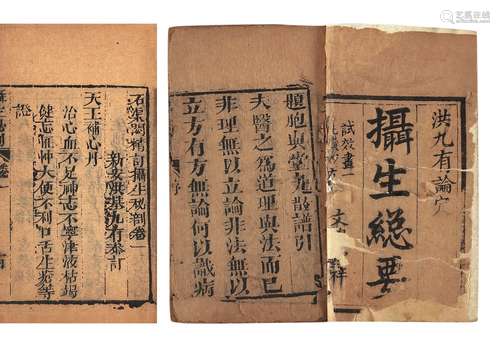 石渠閣精訂攝生秘剖卷一
新安洪基九有參訂
天王補心丹
治心血不足神志不寧津液枯竭
健忘怔忡大便不利口舌生瘡等
證
胞與堂丸散譜引
夫醫之為道理與法而已
非理無以立法非法無以
立方有方無論何以識病
洪九有論定
攝生總要
試效